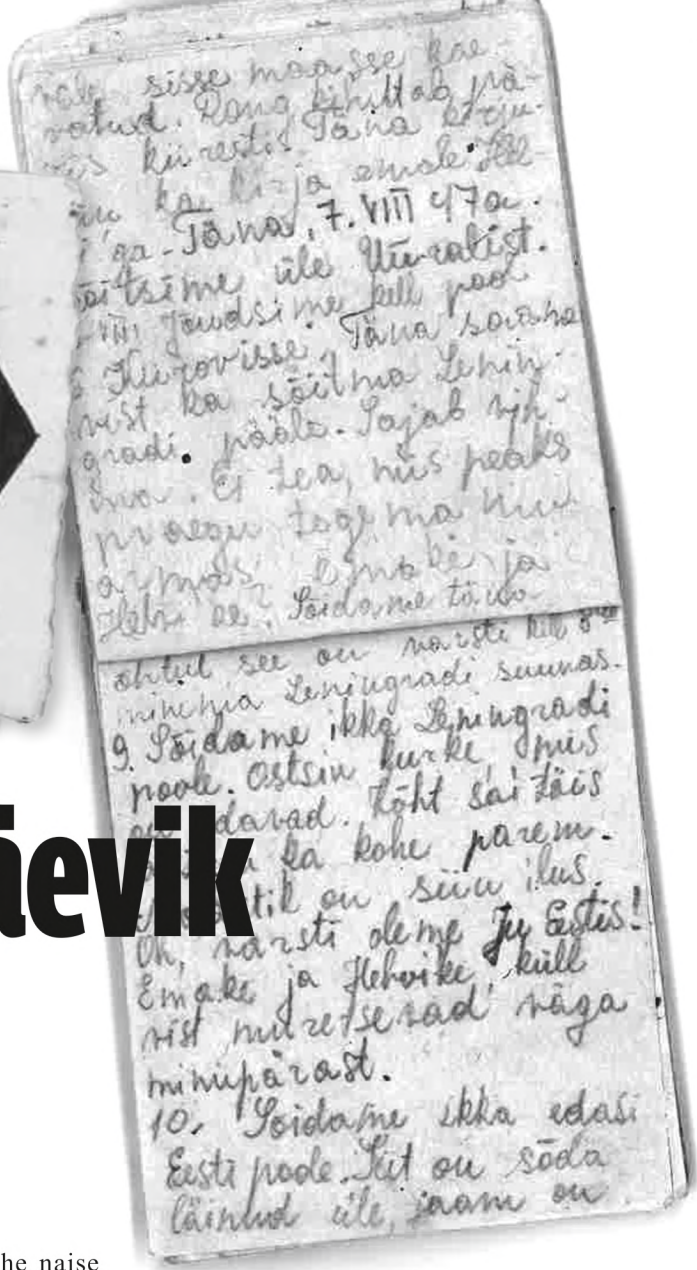 sisse maasse kae-
vatud. Rong kihutab pä-
ris kiiresti. Täna kirju-
ka kirja emale.
ga. Täna, 7. VIII 47a.
sõitsime üle Uuralist.
VIII Jõudsime kell pool
Kirovisse. Täna
vist ka sõitma Lenin-
gradi pääle. Sajab vih-
ma. Ei tea, mis peaks
praegu tegema mu
armas emake ja
Helvi ee? Sõidame täna
õhtul see on varsti kell
minema Leningradi suunas.
9. Sõidame ikka Leningradi
poole. Ostsin kurke, mis
odavad. Kõht sai täis
ka kohe parem.
on siin ilus.
Oh, varsti oleme ju Eestis!
Emake ja Helvike küll
vist muretsevad väga
minupärast.
10. Sõidame ikka edasi
Eesti poole. Siit on sõda
läinud üle, jaam on
äevik
he naise